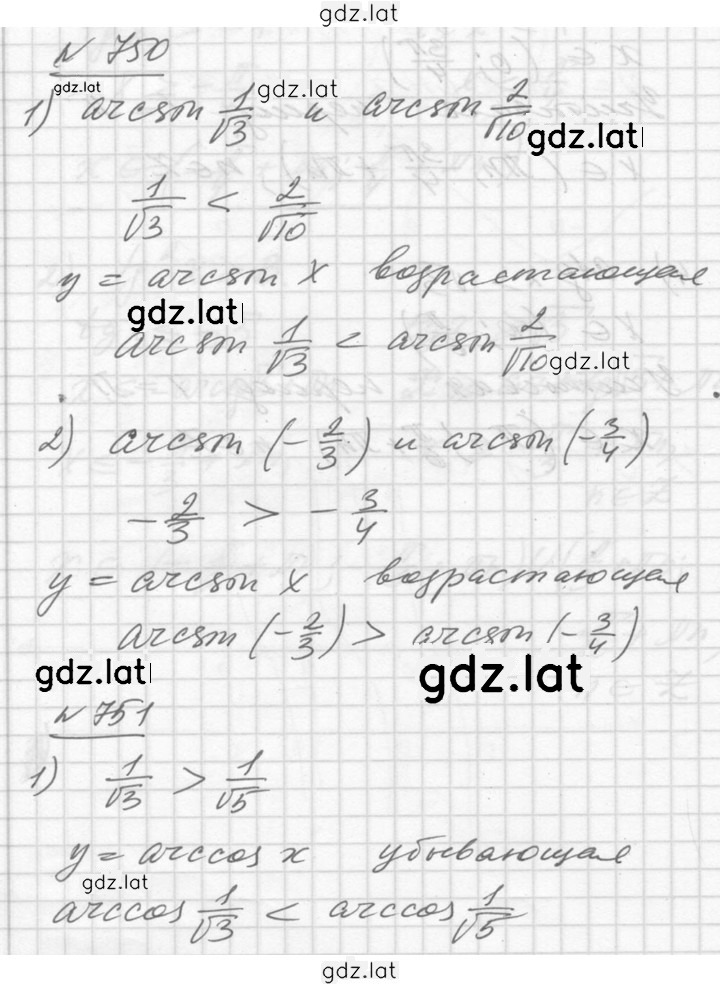 gdz.lat
№ 750
gdz.lat
gdz.lat
1) arcsin 1/√3 и arcsin 2/√10
gdz.lat
1/√3 < 2/√10
y = arcsin x возрастающая
gdz.lat
arcsin 1/√3 < arcsin 2/√10
gdz.lat
2) arcsin (-2/3) и arcsin (-3/4)
-2/3 > -3/4
y = arcsin x возрастающая
arcsin (-2/3) > arcsin (-3/4)
gdz.lat
gdz.lat
№ 751
1) 1/√3 > 1/√5
y = arccos x убывающая
gdz.lat
arccos 1/√3 < arccos 1/√5
gdz.lat